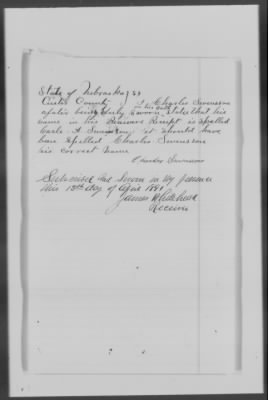 State of Nebraska } ss
Custer County } I Charles Swenson
after being duly sworn states that his
name in his Receipt is spelled
Carle A Swenson, it should have
been spelled Charles Swenson
his correct name
Charles Swenson
Subscribed and Sworn in my presence
this 13th day of April 1891
James Whitehead
Receiver